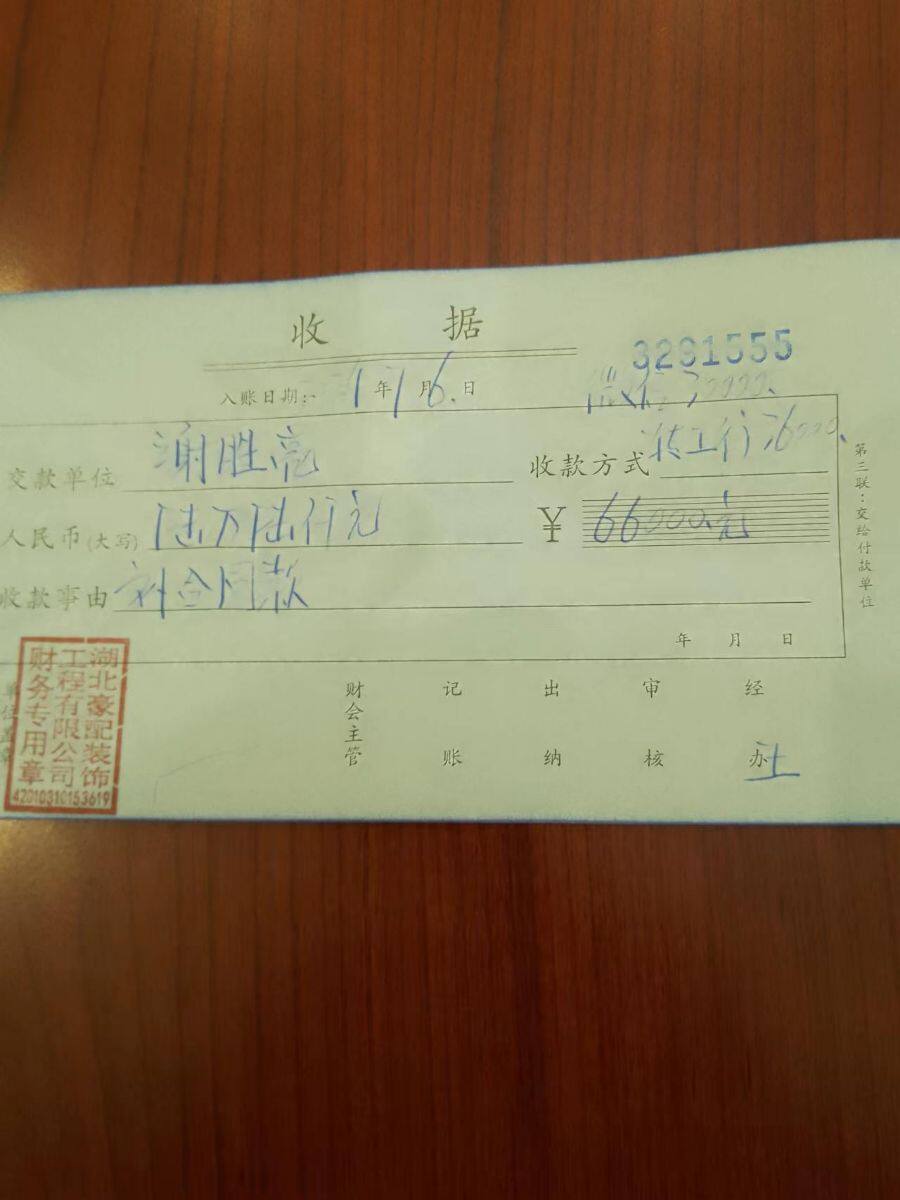 收 据
3291555
入账日期: 1年1月6日
交款单位 谢胜亮 收款方式 转工行
人民币(大写) 陆万陆仟元 ¥ 66000元
收款事由 补合同款
年 月 日
第三联:交给付款单位
财会主管 记账 出纳 审核 经办
湖北豪配装饰
工程有限公司
财务专用章
42010310153619